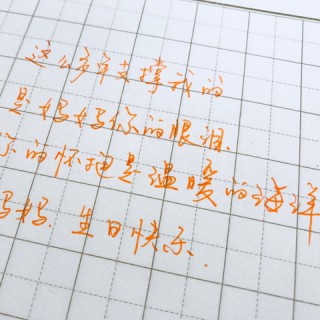 这么多年支撑我的
是妈妈你的眼泪.
你的怀抱是温暖的海洋
妈妈.生日快乐.